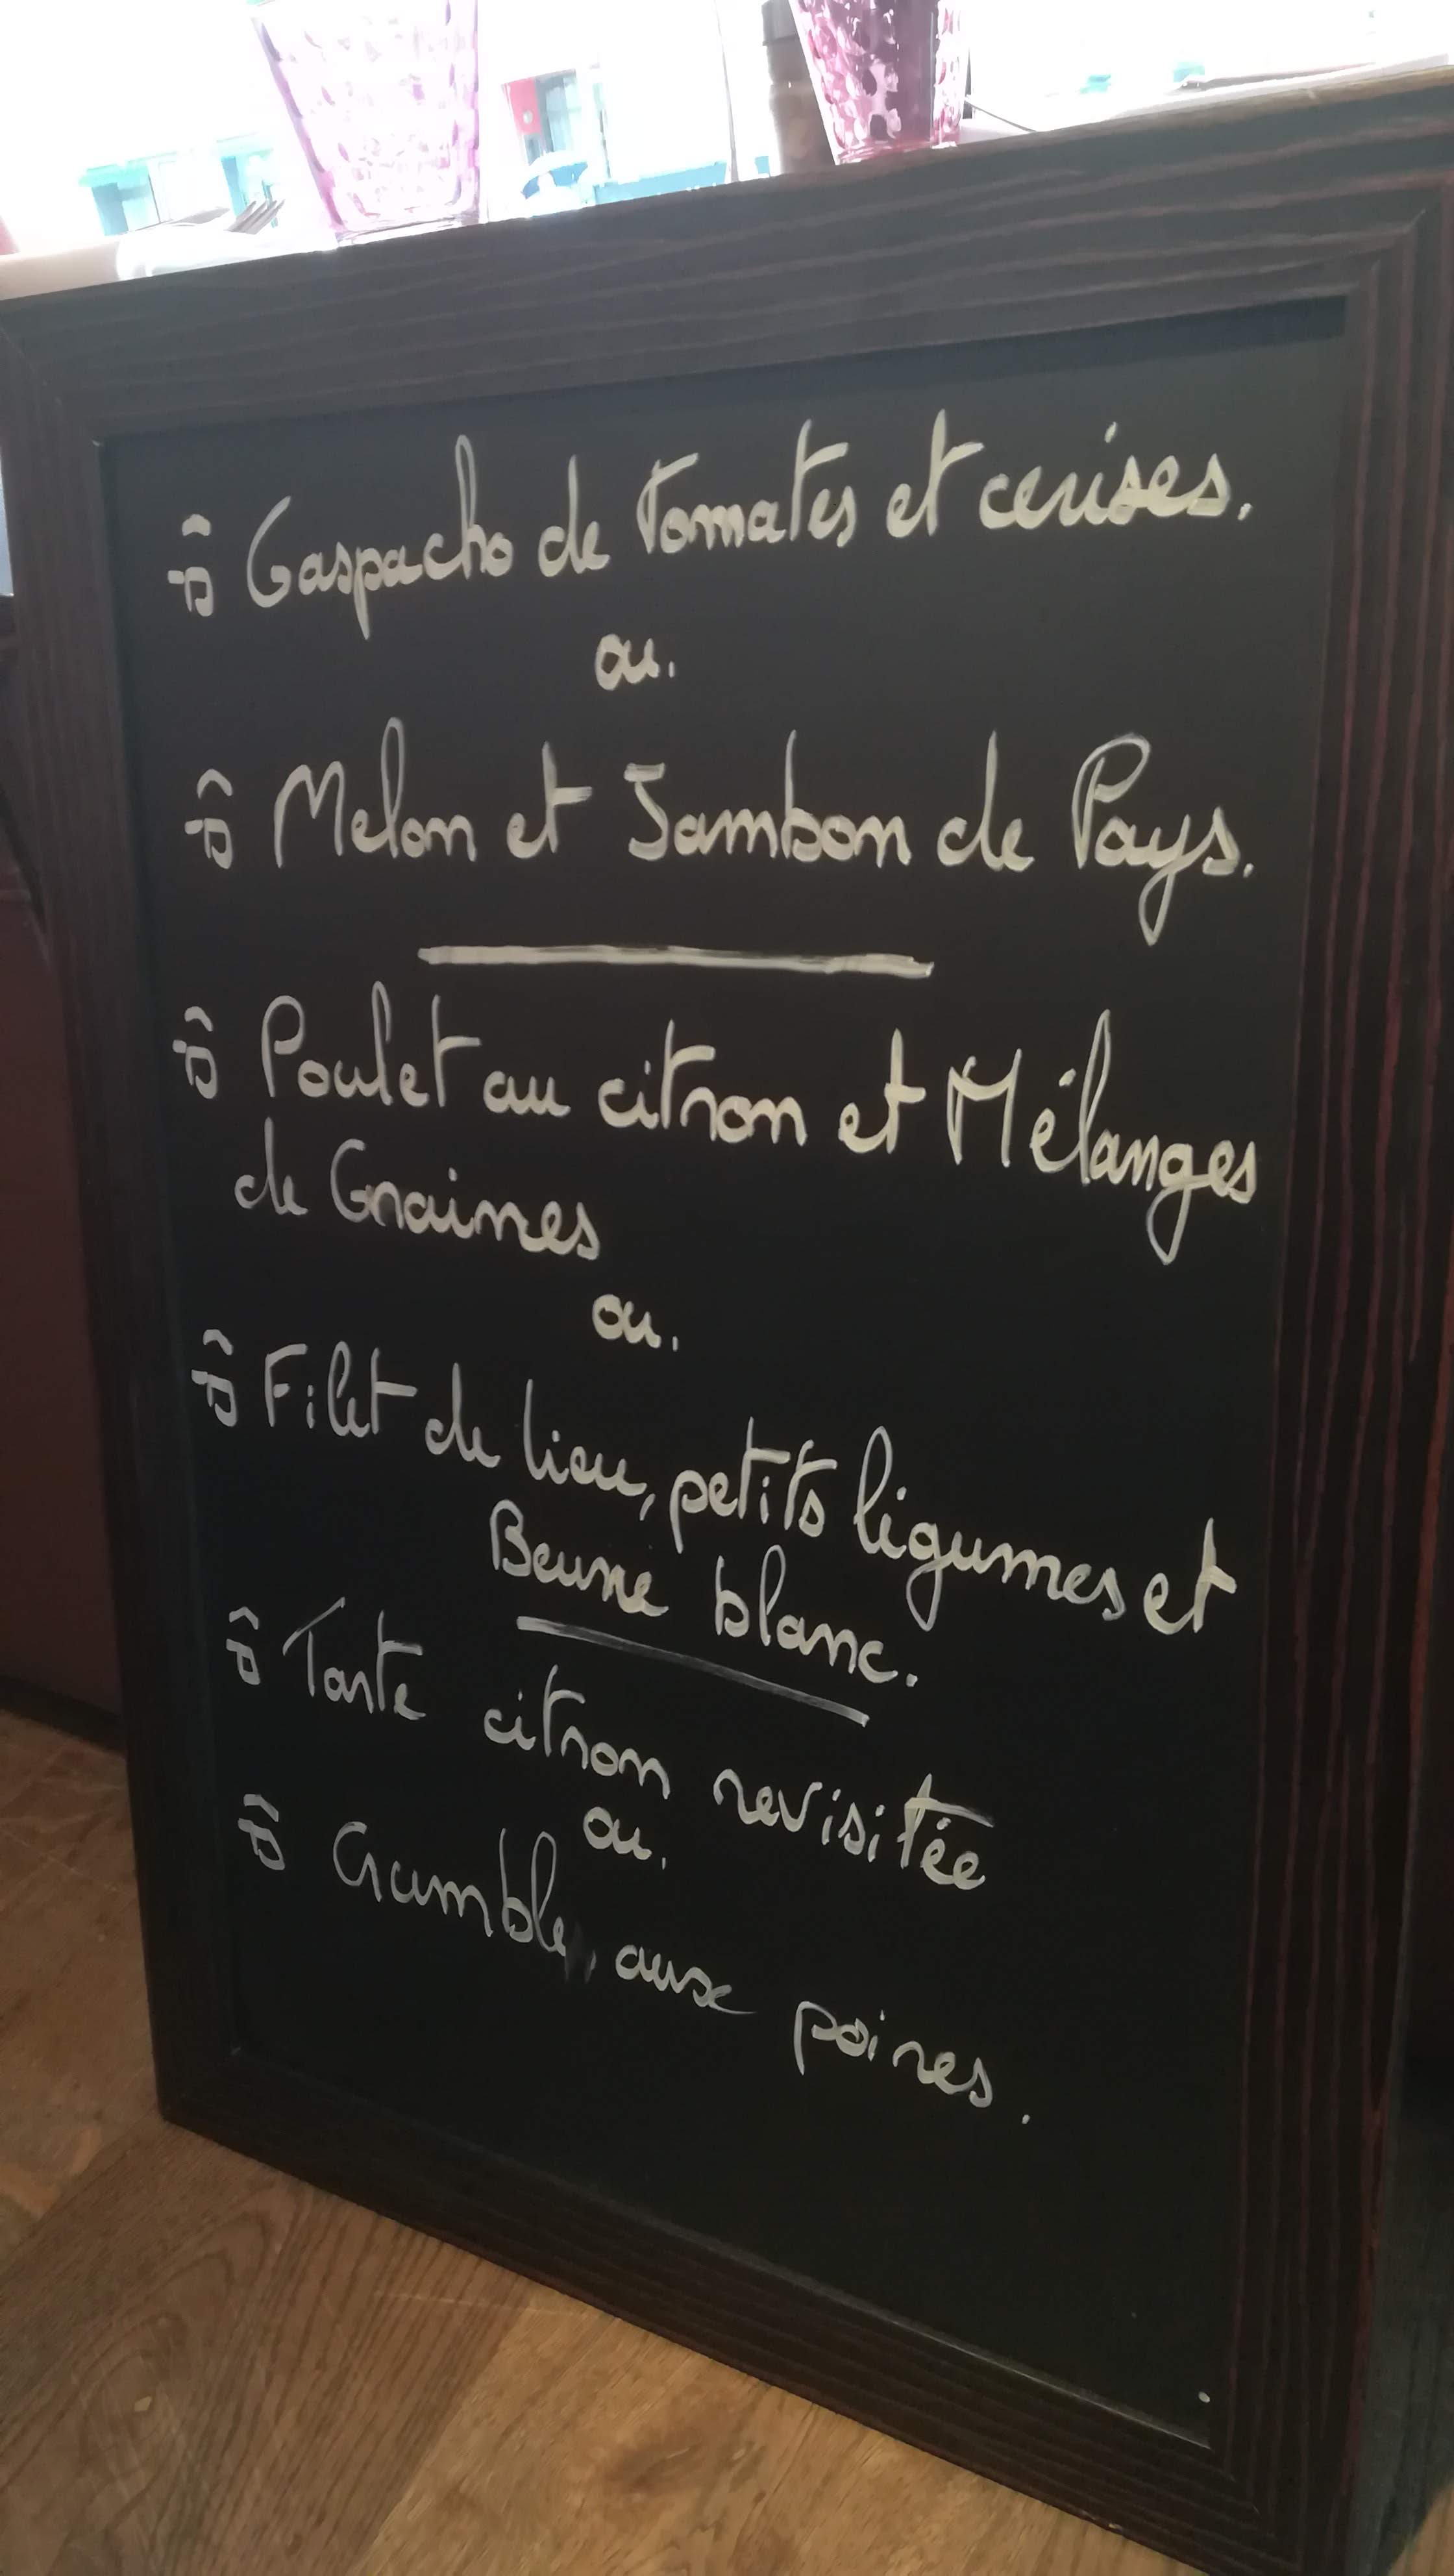 Gaspacho de Tomates et cerises.
ou.
Melon et Jambon de Pays.
Poulet au citron et Mélanges
de Graines
ou.
Filet de lieu, petits légumes et
Beurre blanc.
Tarte citron revisitée
ou.
Crumble, aux poires.